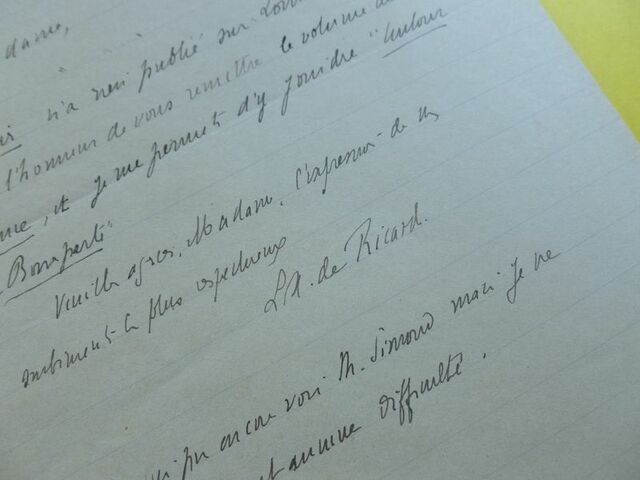 dame,
n'a rien publié sur
l'honneur de vous remettre le volume
, et je me permets d'y joindre "Autour
Bonaparte"
Veuillez agréer, Madame, l'expression de mes
sentiments les plus respectueux
LX. de Ricard.
pu encore voir M. Simond mais je ne
aucune difficulté.